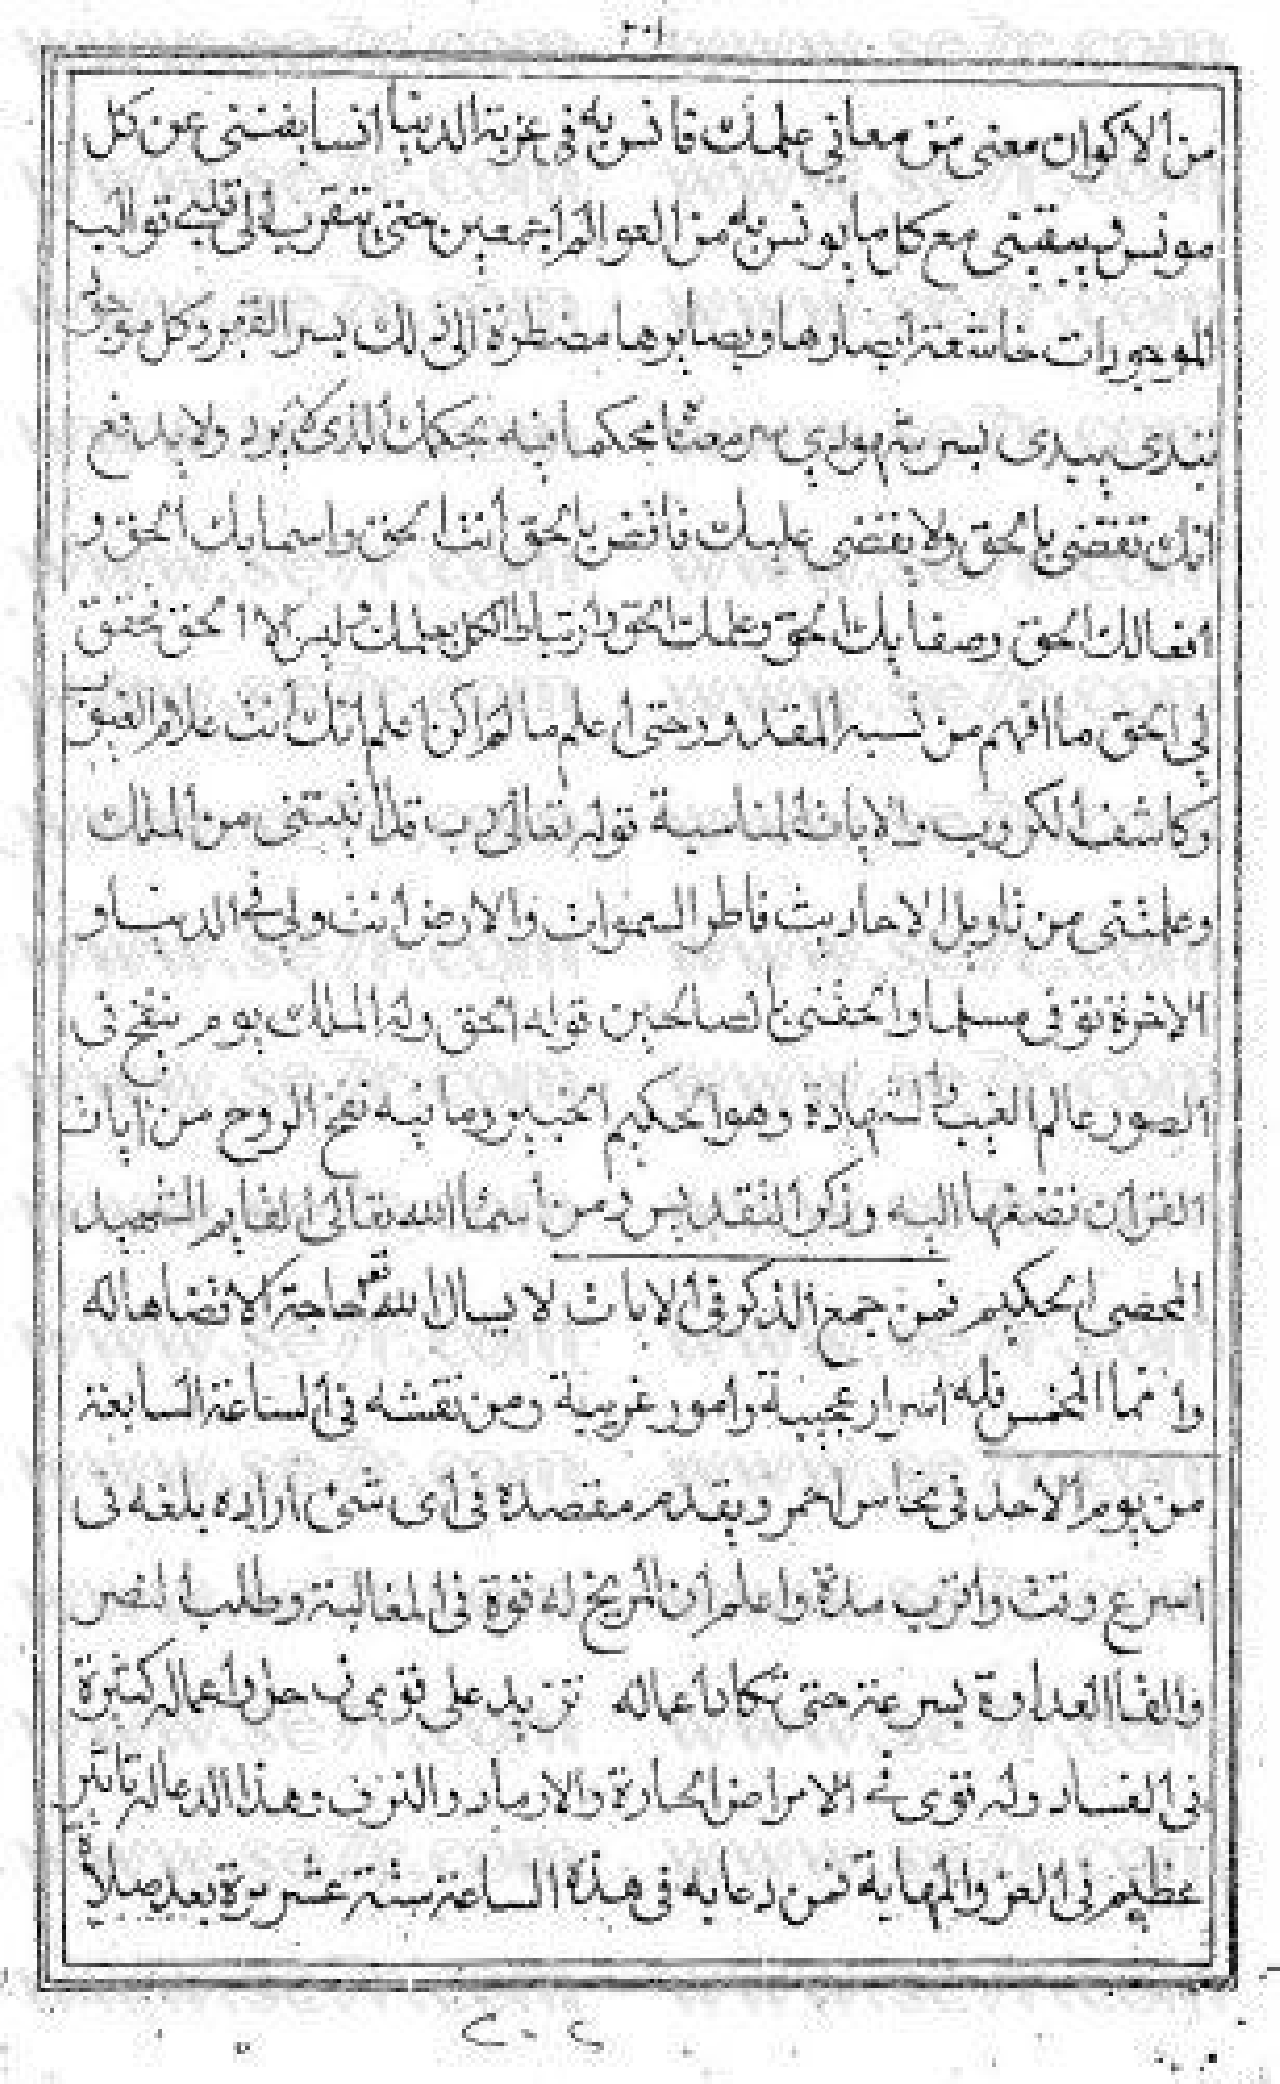 ٢٠١
من الاكوان معنى من معاني علمك فانس به في غربة الدنيا انسا يغنني عن كل
مونس ويبقيني مع كل ما يونس به من العوالم اجمعين حتى تتقرب الى قلبي قوالب
الموجودات خاشعة ابصارها وبصايرها مضطرة الى ذلك بسر القهر وكل
بيدى بسر شهودي محكما فيه بحكمك الذى لا يرد ولا يدفع
انك تقضى بالحق ولا يقضى عليك فاقض بالحق انت الحق واسمايك الحق و
افعالك الحق وصفايك الحق وعلمك الحق وارتباط الكل بعلمك ليس الا الحق فحقق
لي الحق ما افهم من نسبة المقدور وحتى اعلم ما لم اكن اعلم انك انت علام الغيوب
وكاشف الكروب والايات المناسبة قوله تعالى رب قد اتيتنى من الملك
وعلمتنى من تاويل الاحاديث فاطر السموات والارض انت ولي في الدنيا و
الاخرة توفنى مسلما والحقنى بالصالحين قوله الحق وله الملك يوم ينفخ في
الصور عالم الغيب والشهادة وهو الحكيم الخبير وما فيه نفخ الروح من ايات
القران تضيفها اليه وذكر التقديس ومن اسما الله تعالى القايم الشهيد
المحصى الحكيم فمن جمع الذكر في الايات لا يسال الله تعو حاجة الا قضاها له
واما المخمس فله اسرار عجيبة وامور غريبة ومن نقشه في الساعة السابعة
من يوم الاحد في نحاس احمر ويقدم مقصده في اى شئ اراده بلغه في
اسرع وقت واقرب مدة واعلم ان المريخ له قوة في المغالبة وطلب النصر
والقا العداوة بسرعة حتى تكاد اعماله تزيد على قوى زحل واعماله كثيرة
في الفساد وله قوى في الامراض الحارة والارماد والنزف وهذا الدعا له تاثير
عظيم في العز والمهابة فمن دعا به في هذه الساعة ستة عشر مرة بعد صلاة
٢٠٢